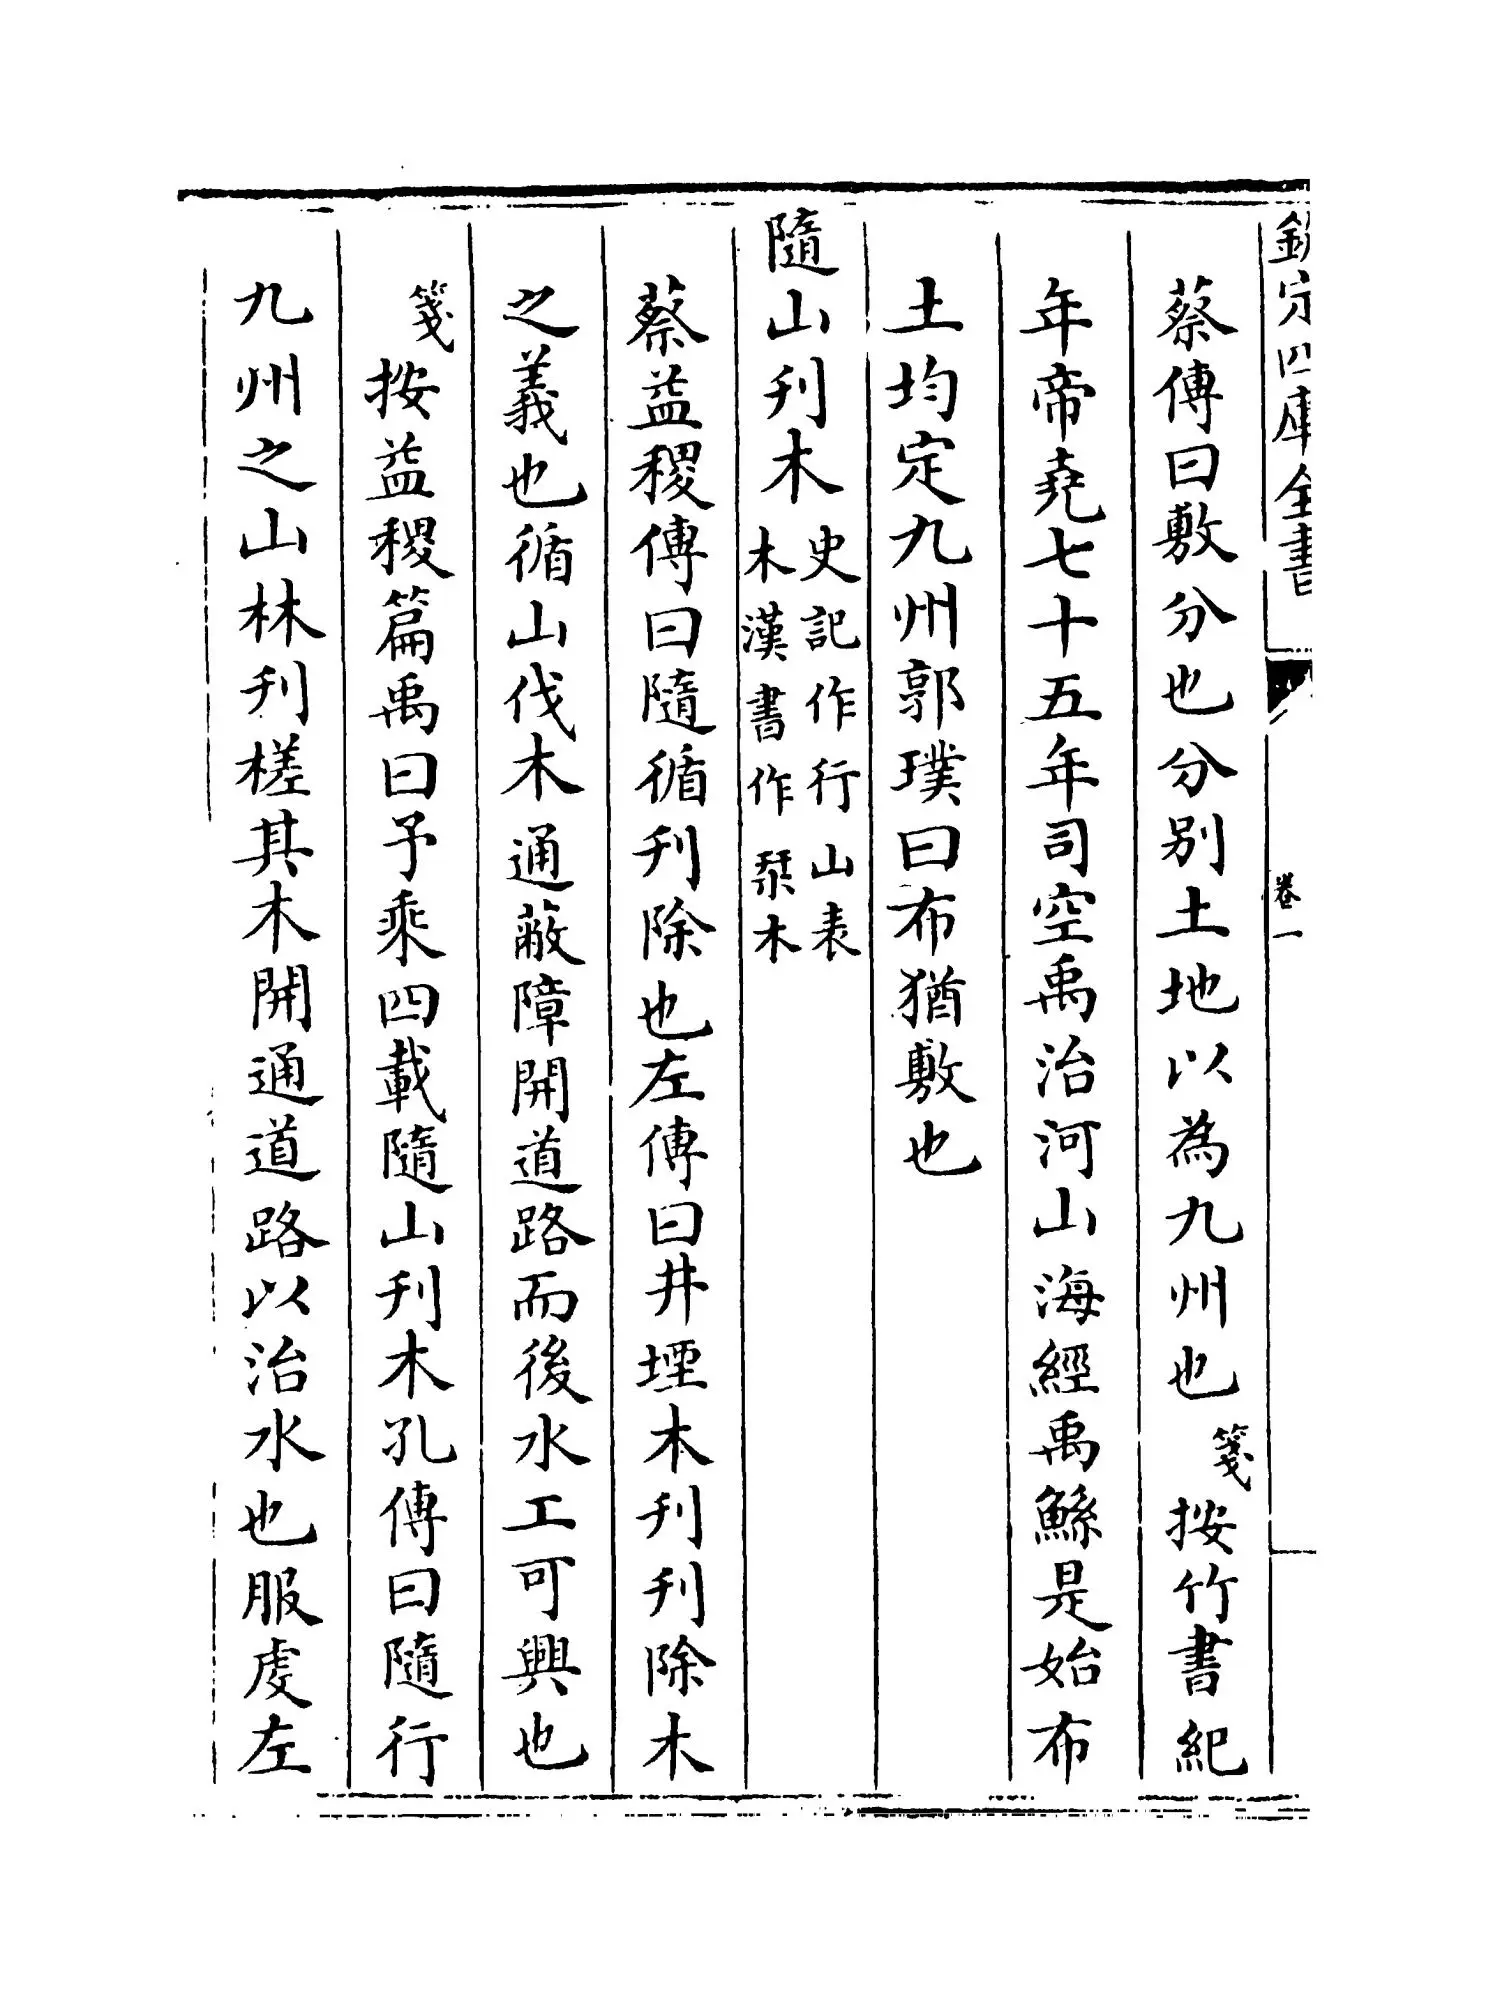 欽定四庫全書
卷一
蔡傳曰敷分也分别土地以為九州也箋按竹書紀
年帝堯七十五年司空禹治河山海經禹鯀是始布
土均定九州郭璞曰布猶敷也
隨山刊木史記作行山表
木漢書作栞木
蔡益稷傳曰隨循刋除也左傳曰井堙木刋刋除木
之義也循山伐木通蔽障開道路而後水工可興也
箋按益稷篇禹曰予乘四載隨山刋木孔傳曰隨行
九州之山林刋槎其木開通道路以治水也服虔左